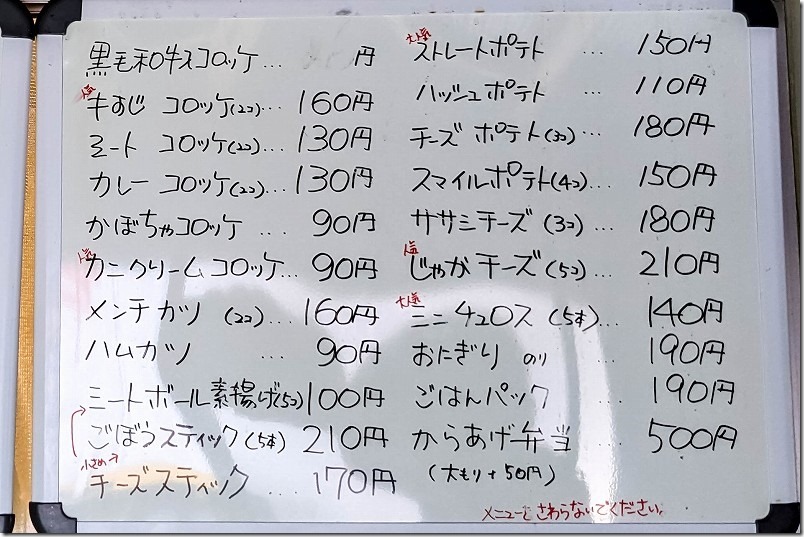 黒毛和牛スコロッケ... 円
人気
牛すじ コロッケ(2コ)... 160円
ミート コロッケ(2コ)... 130円
カレー コロッケ(2コ)... 130円
かぼちゃコロッケ ... 90円
人気
カニクリームコロッケ... 90円
メンチカツ (2コ)... 160円
ハムカツ ... 90円
ミートボール素揚げ(5コ)100円
ごぼうスティック(5本)210円
小さめ→
チーズスティック ... 170円
大人気
ストレートポテト ... 150円
ハッシュポテト ... 110円
チーズ ポテト(3コ)... 180円
スマイルポテト(4コ)... 150円
ササミチーズ(3コ)... 180円
人気
じゃがチーズ(5コ)... 210円
大人気
ミニチュロス(5本)... 140円
おにぎり のり ... 190円
ごはんパック ... 190円
からあげ弁当 ... 500円
(大もり+50円)
メニューをさわらないでください。